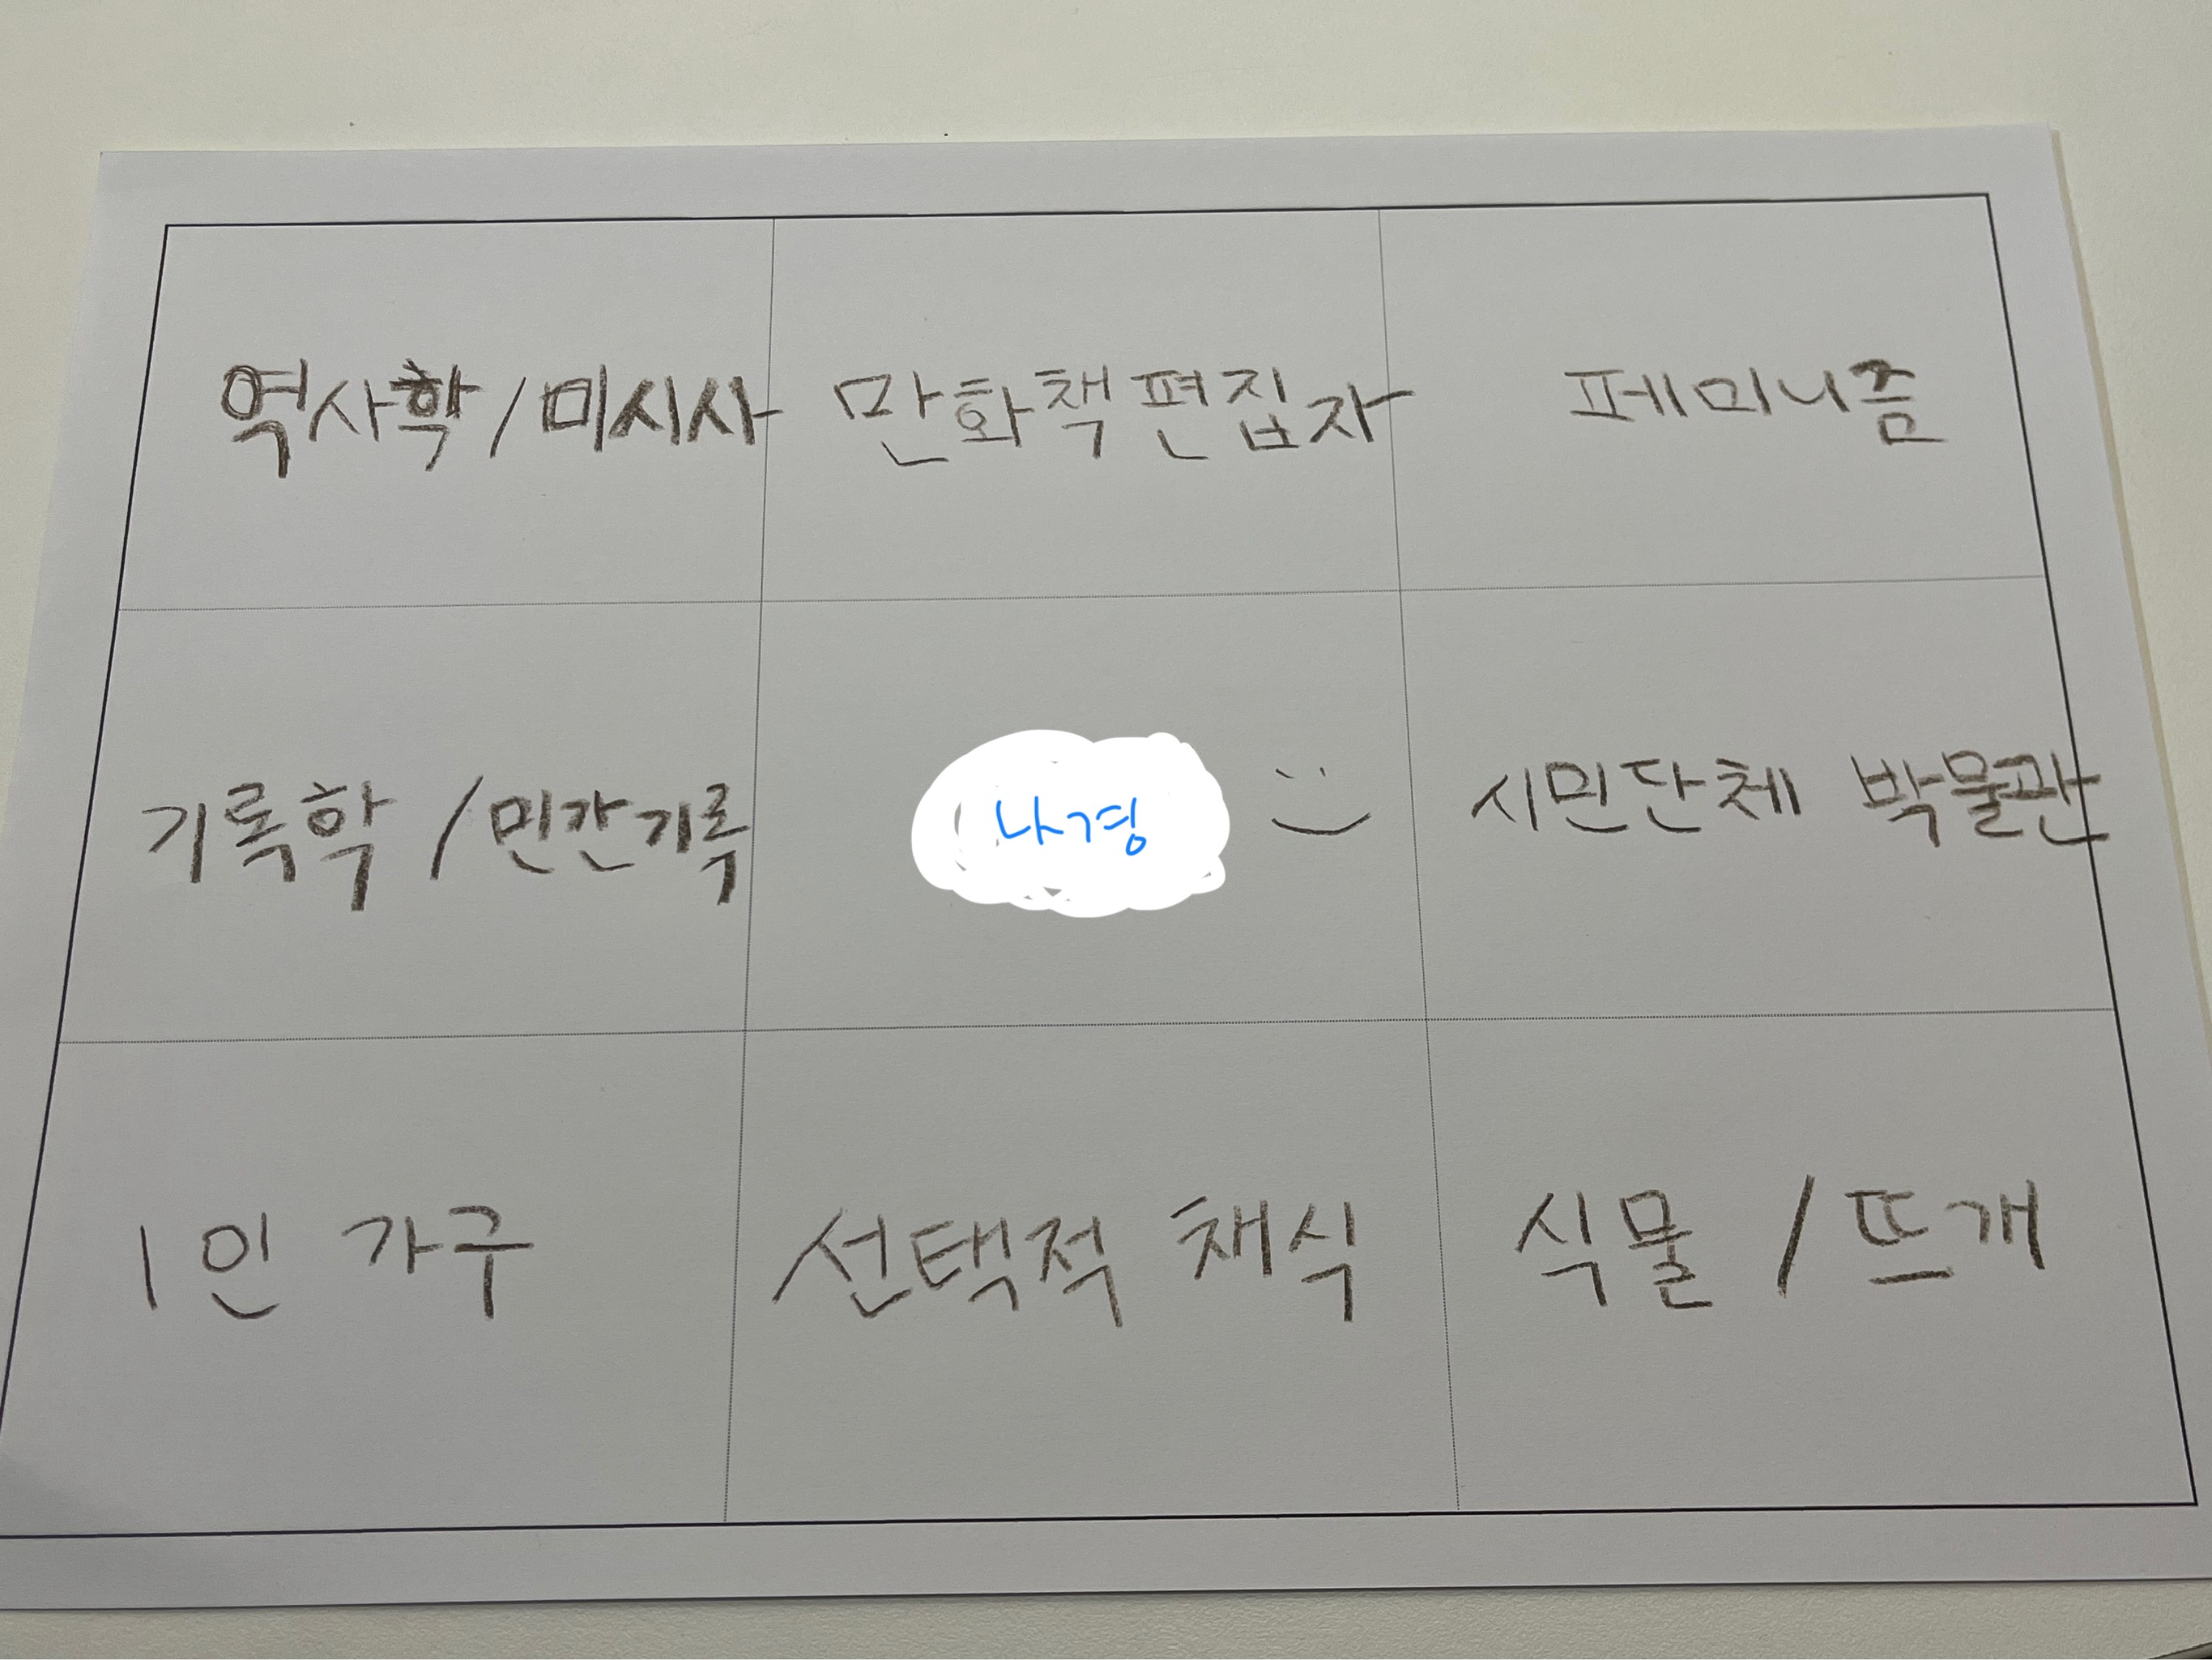 역사학/미시사
만화책편집자
페미니즘
기록학/민간기록
나경
시민단체 박물관
1인 가구
선택적 채식
식물/뜨개